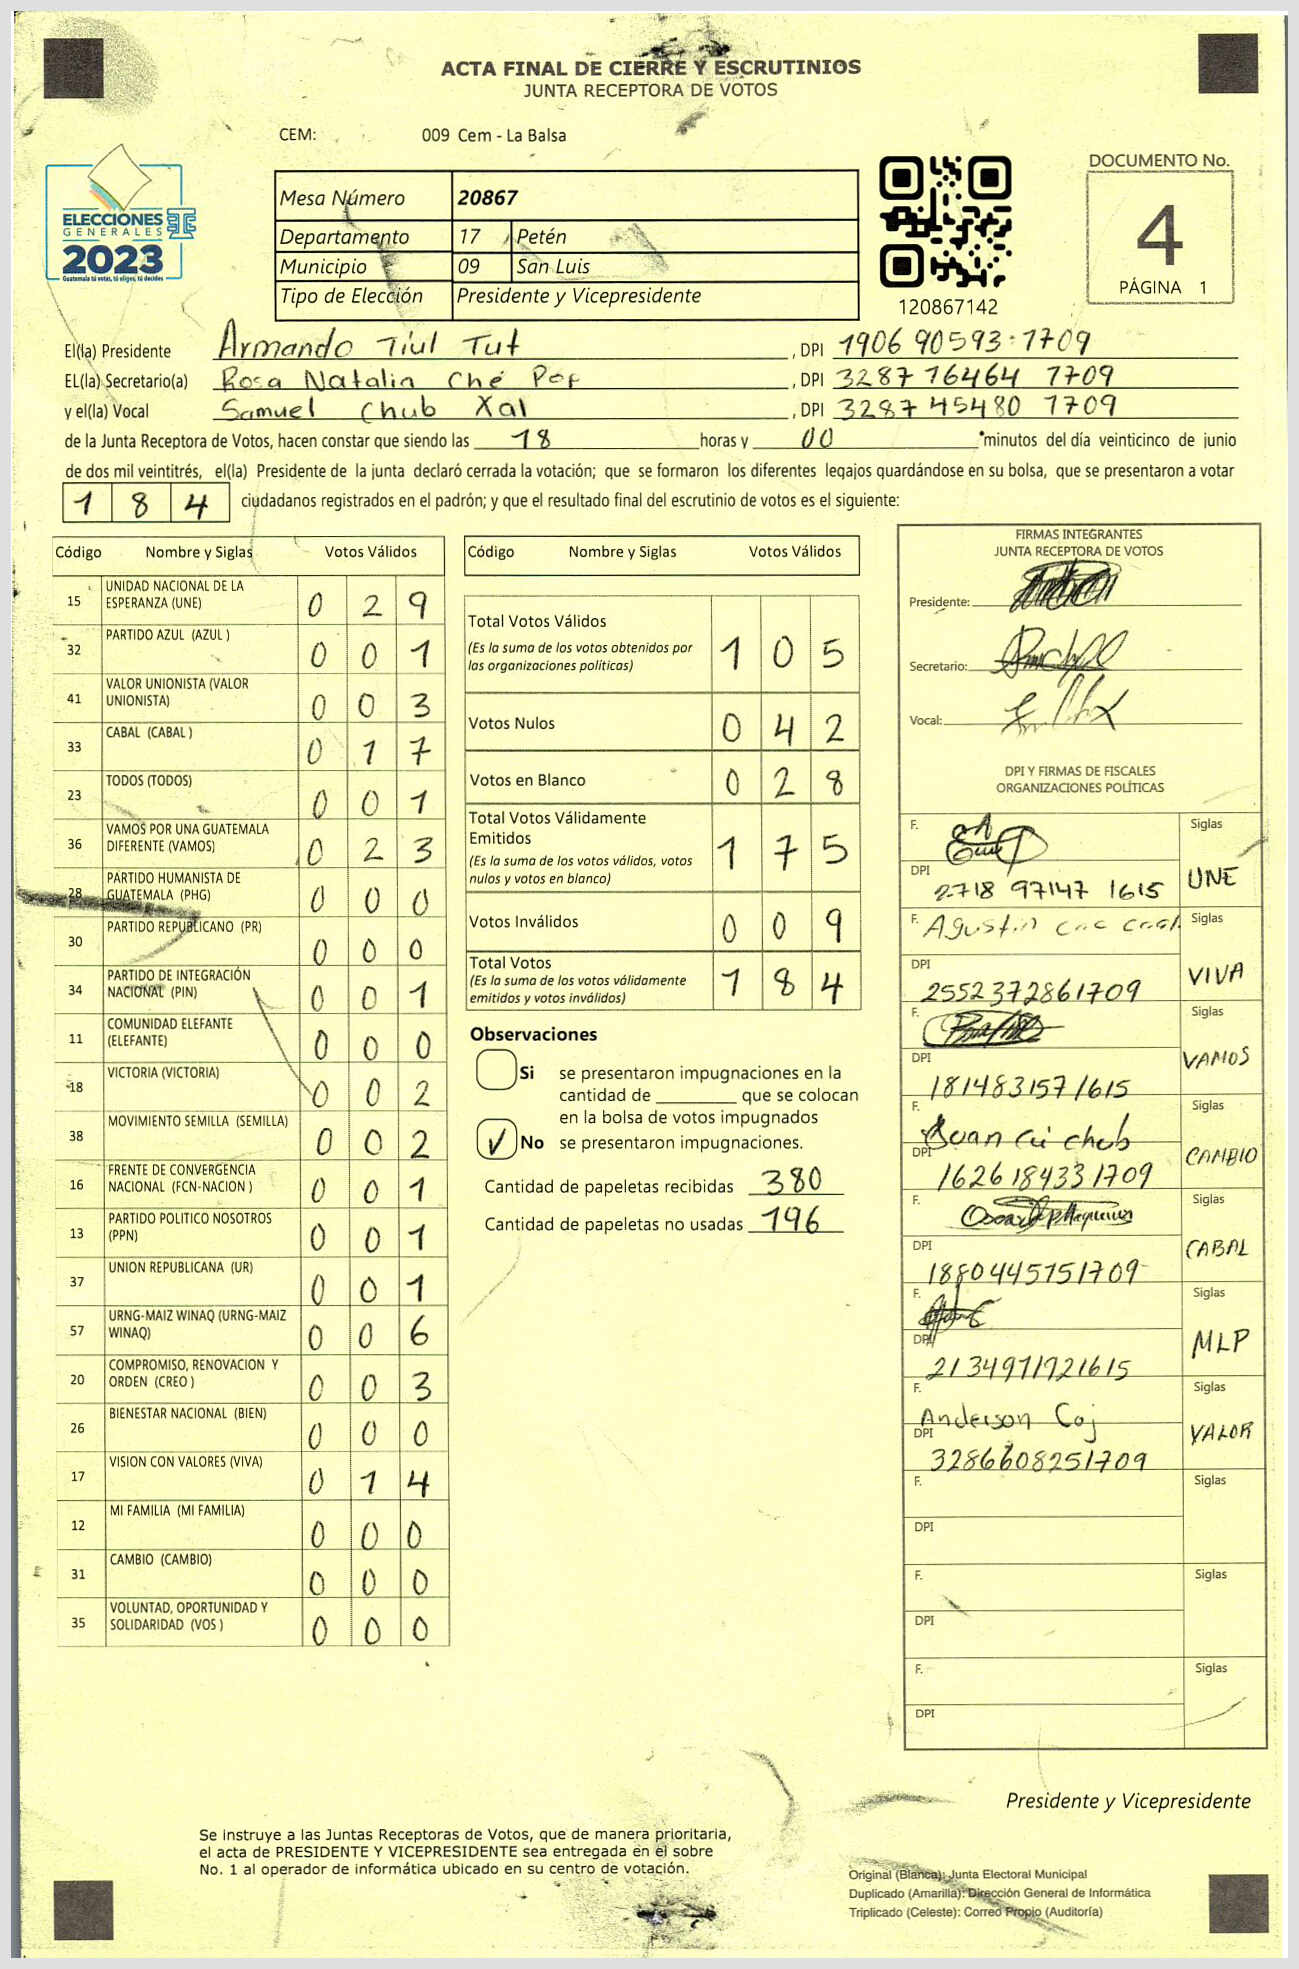 ACTA FINAL DE CIERRE Y ESCRUTINIOS
JUNTA RECEPTORA DE VOTOS
CEM: 009 Cem - La Balsa
ELECCIONES
GENERALES
2023
Guatemala tú votas, tú eliges, tú decides
Mesa Número 20867
Departamento 17 Petén
Municipio 09 San Luis
Tipo de Elección Presidente y Vicepresidente
120867142
DOCUMENTO No.
4
PÁGINA 1
El(la) Presidente Armando Tiul Tut , DPI 1906 90593 1709
EL(la) Secretario(a) Rosa Natalia Ché Pop , DPI 3287 76464 1709
y el(la) Vocal Samuel Chub Xal , DPI 3287 45480 1709
de la Junta Receptora de Votos, hacen constar que siendo las 18 horas y 00 minutos del día veinticinco de junio
de dos mil veintitrés, el(la) Presidente de la junta declaró cerrada la votación; que se formaron los diferentes legajos quardándose en su bolsa, que se presentaron a votar
184 ciudadanos registrados en el padrón; y que el resultado final del escrutinio de votos es el siguiente:
Código Nombre y Siglas Votos Válidos
15 UNIDAD NACIONAL DE LA ESPERANZA (UNE) 0 2 9
32 PARTIDO AZUL (AZUL ) 0 0 1
41 VALOR UNIONISTA (VALOR UNIONISTA) 0 0 3
33 CABAL (CABAL ) 0 1 7
23 TODOS (TODOS) 0 0 1
36 VAMOS POR UNA GUATEMALA DIFERENTE (VAMOS) 0 2 3
28 PARTIDO HUMANISTA DE GUATEMALA (PHG) 0 0 0
30 PARTIDO REPUBLICANO (PR) 0 0 0
34 PARTIDO DE INTEGRACIÓN NACIONAL (PIN) 0 0 1
11 COMUNIDAD ELEFANTE (ELEFANTE) 0 0 0
18 VICTORIA (VICTORIA) 0 0 2
38 MOVIMIENTO SEMILLA (SEMILLA) 0 0 2
16 FRENTE DE CONVERGENCIA NACIONAL (FCN-NACION ) 0 0 1
13 PARTIDO POLITICO NOSOTROS (PPN) 0 0 1
37 UNION REPUBLICANA (UR) 0 0 1
57 URNG-MAIZ WINAQ (URNG-MAIZ WINAQ) 0 0 6
20 COMPROMISO, RENOVACION Y ORDEN (CREO ) 0 0 3
26 BIENESTAR NACIONAL (BIEN) 0 0 0
17 VISION CON VALORES (VIVA) 0 1 4
12 MI FAMILIA (MI FAMILIA) 0 0 0
31 CAMBIO (CAMBIO) 0 0 0
35 VOLUNTAD, OPORTUNIDAD Y SOLIDARIDAD (VOS ) 0 0 0
Código Nombre y Siglas Votos Válidos
Total Votos Válidos 1 0 5
(Es la suma de los votos obtenidos por
las organizaciones políticas)
Votos Nulos 0 4 2
Votos en Blanco 0 2 8
Total Votos Válidamente
Emitidos 1 7 5
(Es la suma de los votos válidos, votos
nulos y votos en blanco)
Votos Inválidos 0 0 9
Total Votos 1 8 4
(Es la suma de los votos válidamente
emitidos y votos inválidos)
Observaciones
Si se presentaron impugnaciones en la
cantidad de ________ que se colocan
en la bolsa de votos impugnados
✓ No se presentaron impugnaciones.
Cantidad de papeletas recibidas 380
Cantidad de papeletas no usadas 196
FIRMAS INTEGRANTES
JUNTA RECEPTORA DE VOTOS
Presidente:
Secretario:
Vocal:
DPI Y FIRMAS DE FISCALES
ORGANIZACIONES POLÍTICAS
F. Siglas
DPI 2718 97147 1615 UNE
F. Agustin Siglas
DPI 2552372861709 VIVA
F. Siglas
DPI 1814831571615 VAMOS
F. Juan Cú chub Siglas
DPI 1626184331709 CAMBIO
F. Siglas
DPI 1880445751709 CABAL
F. Siglas
DPI 2134971721615 MLP
F. Anderson Coj Siglas
DPI 3286608251709 VALOR
F. Siglas
DPI
F. Siglas
DPI
F. Siglas
DPI
Presidente y Vicepresidente
Se instruye a las Juntas Receptoras de Votos, que de manera prioritaria,
el acta de PRESIDENTE Y VICEPRESIDENTE sea entregada en el sobre
No. 1 al operador de informática ubicado en su centro de votación.
Original (Blanca): Junta Electoral Municipal
Duplicado (Amarilla): Dirección General de Informática
Triplicado (Celeste): Correo Propio (Auditoría)